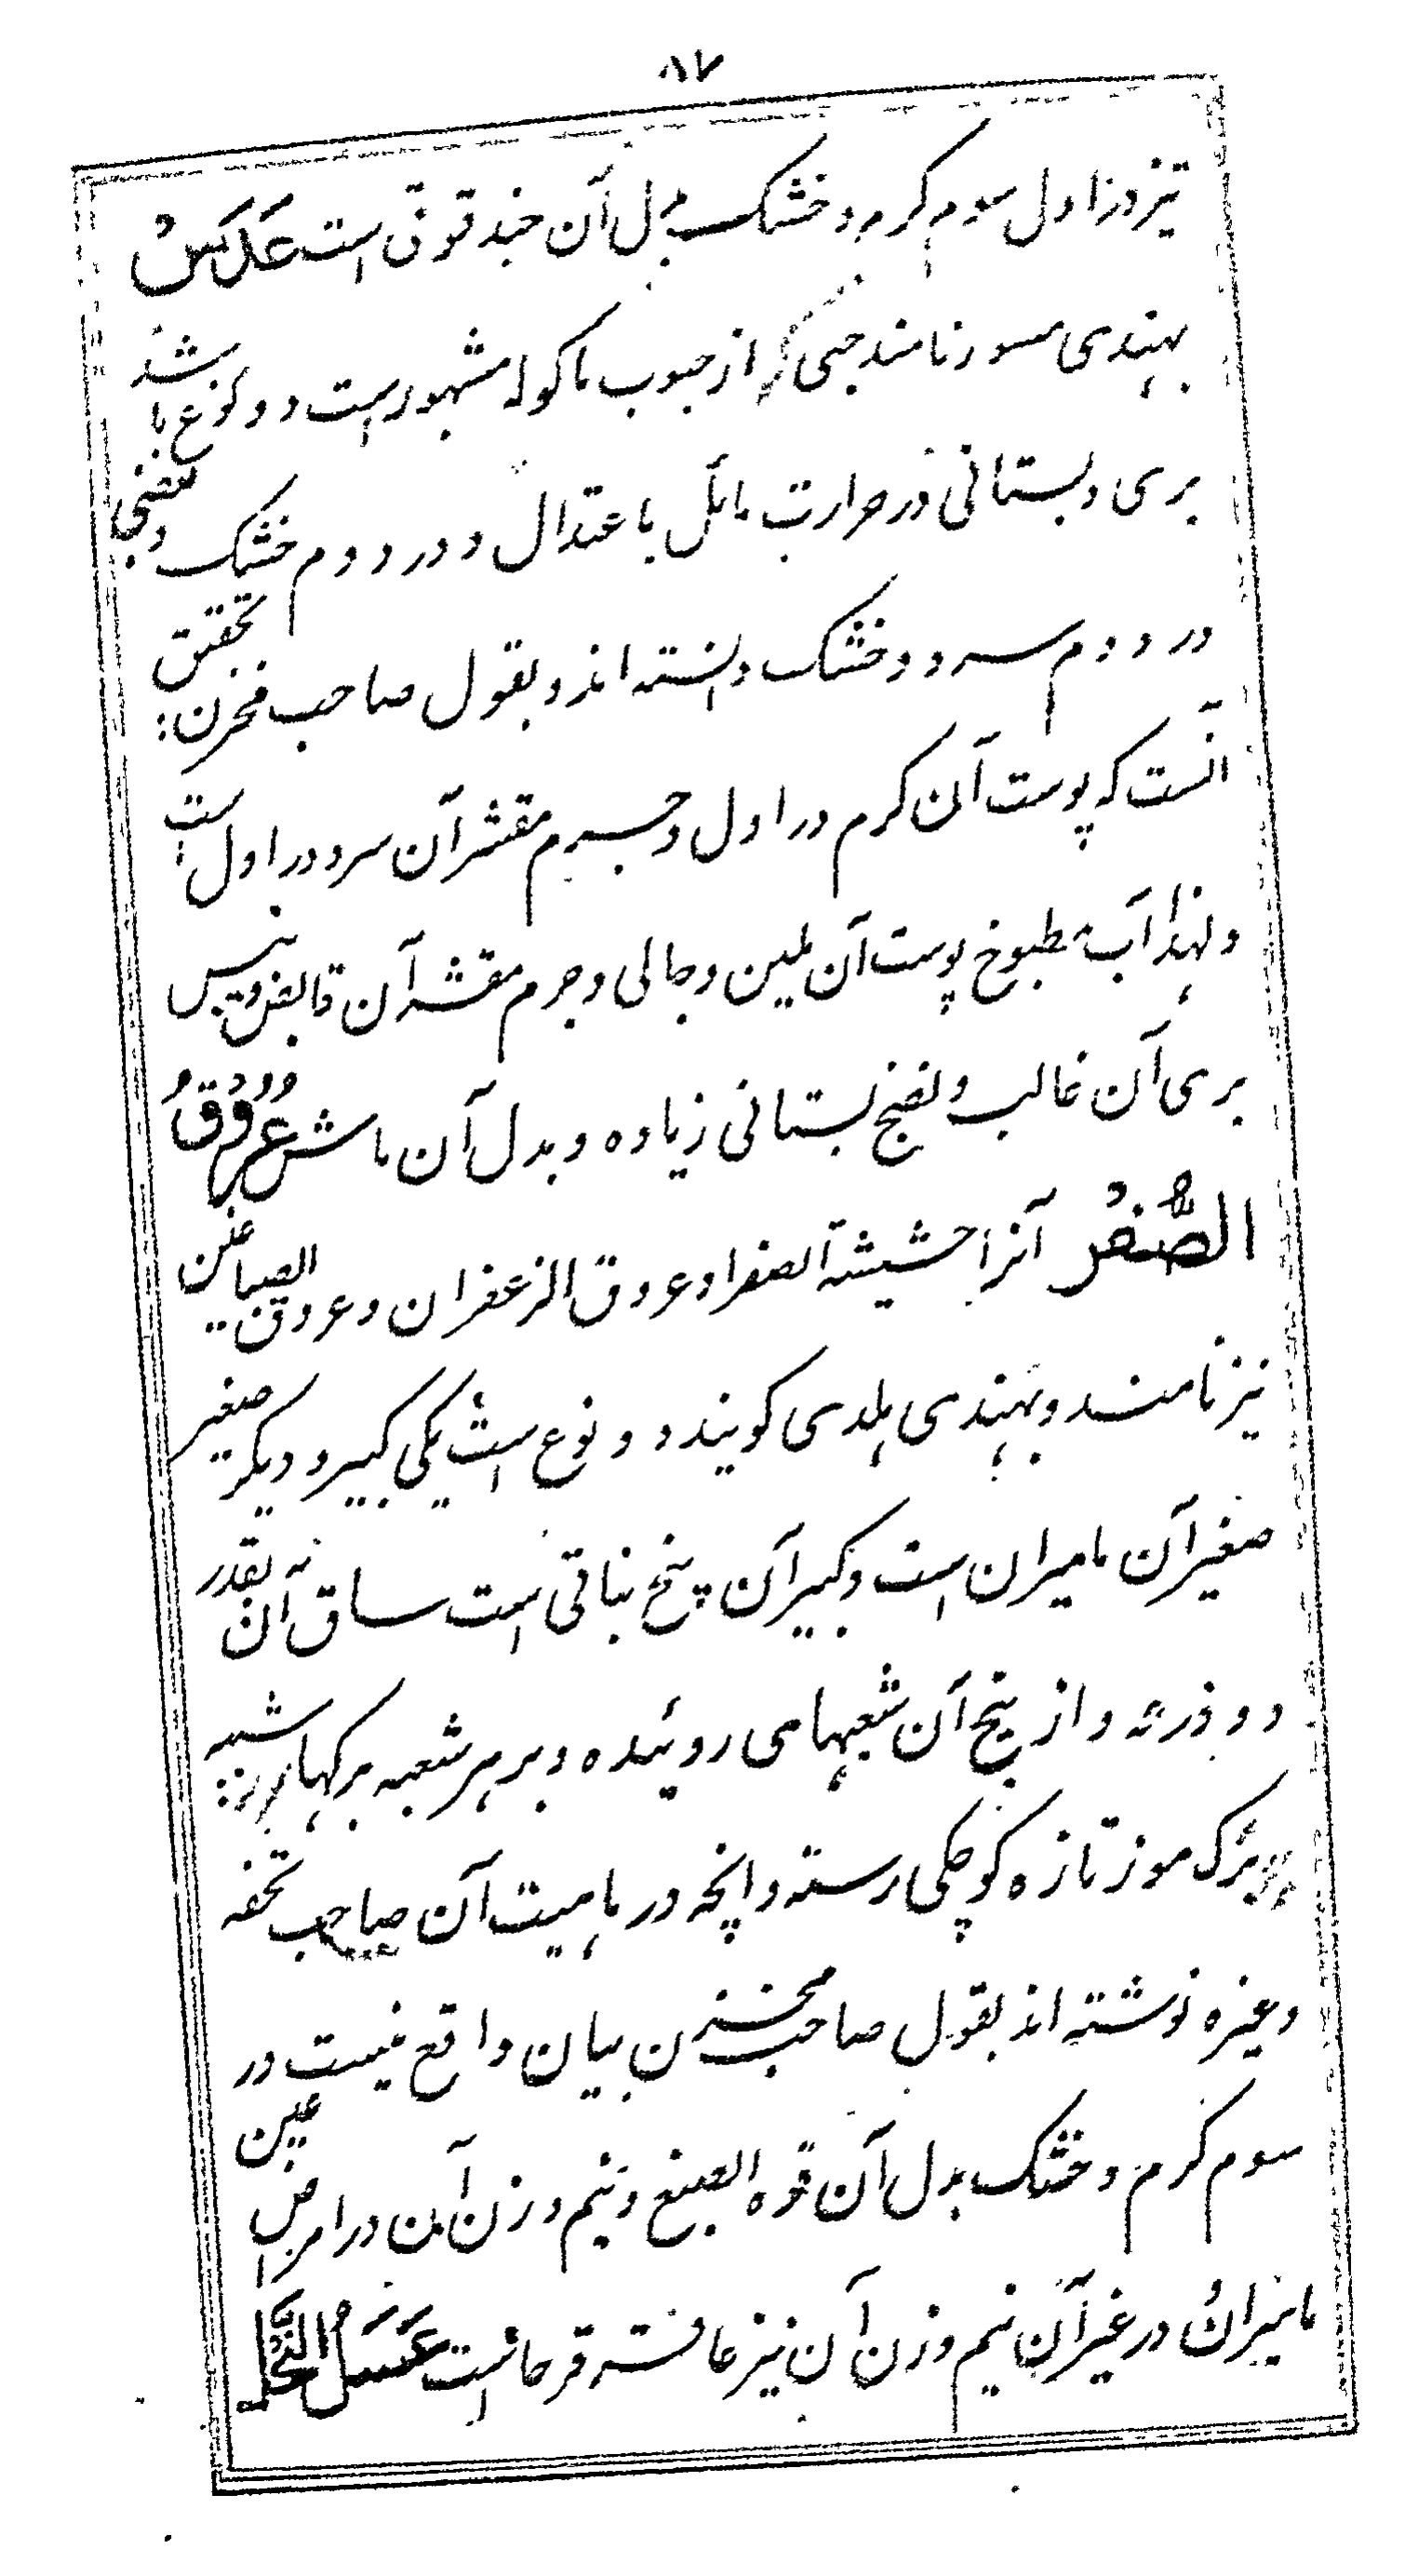 ۸۷
تیزور اول سوم کرم و خشک بدل آن حندقوقی است عَدَسْ
بهندی مسور نامند حبی از حبوب ماکوله مشهور است دو نوع باشد
بری و بستانی در حرارت مائل باعتدال و در دوم خشک و بعضی
در دوم سرد و خشک دانسته اند و بقول صاحب مخزن تحقیق
آنست که پوست آن کرم در اول و جسم مقشر آن سرد در اول است
و لهذا آب مطبوخ پوست آن ملین و جالی و جرم مقشر آن قابض و یبس
بری آن غالب و نضج بستانی زیاده و بدل آن ماش عُرُوْقُ
الصُّفْرُ آنرا حشیشة الصفرا و عروق الزعفران و عروق الصباغین
نیز نامند و بهندی هلدی کویند دو نوع است یکی کبیر و دیکر صغیر
صغیر آن مامیران است و کبیر آن بیخ نباتی است ساق آن بقدر
دو ذرعه و از بیخ آن شعبها می روئیده و بر هر شعبه برکها شبیه
ببرک موز تازه کوچکی رسته و انچه در ماهیت آن صاحب تحفه
و غیره نوشته اند بقول صاحب مخزن بیان واقع نیست در
سوم کرم و خشک بدل آن قوه الصبغ و نیم وزن آن در امراض عین
مامیران در غیر آن نیم وزن آن نیز عاقرقرحا است عَسَلُ النَّحْلِ